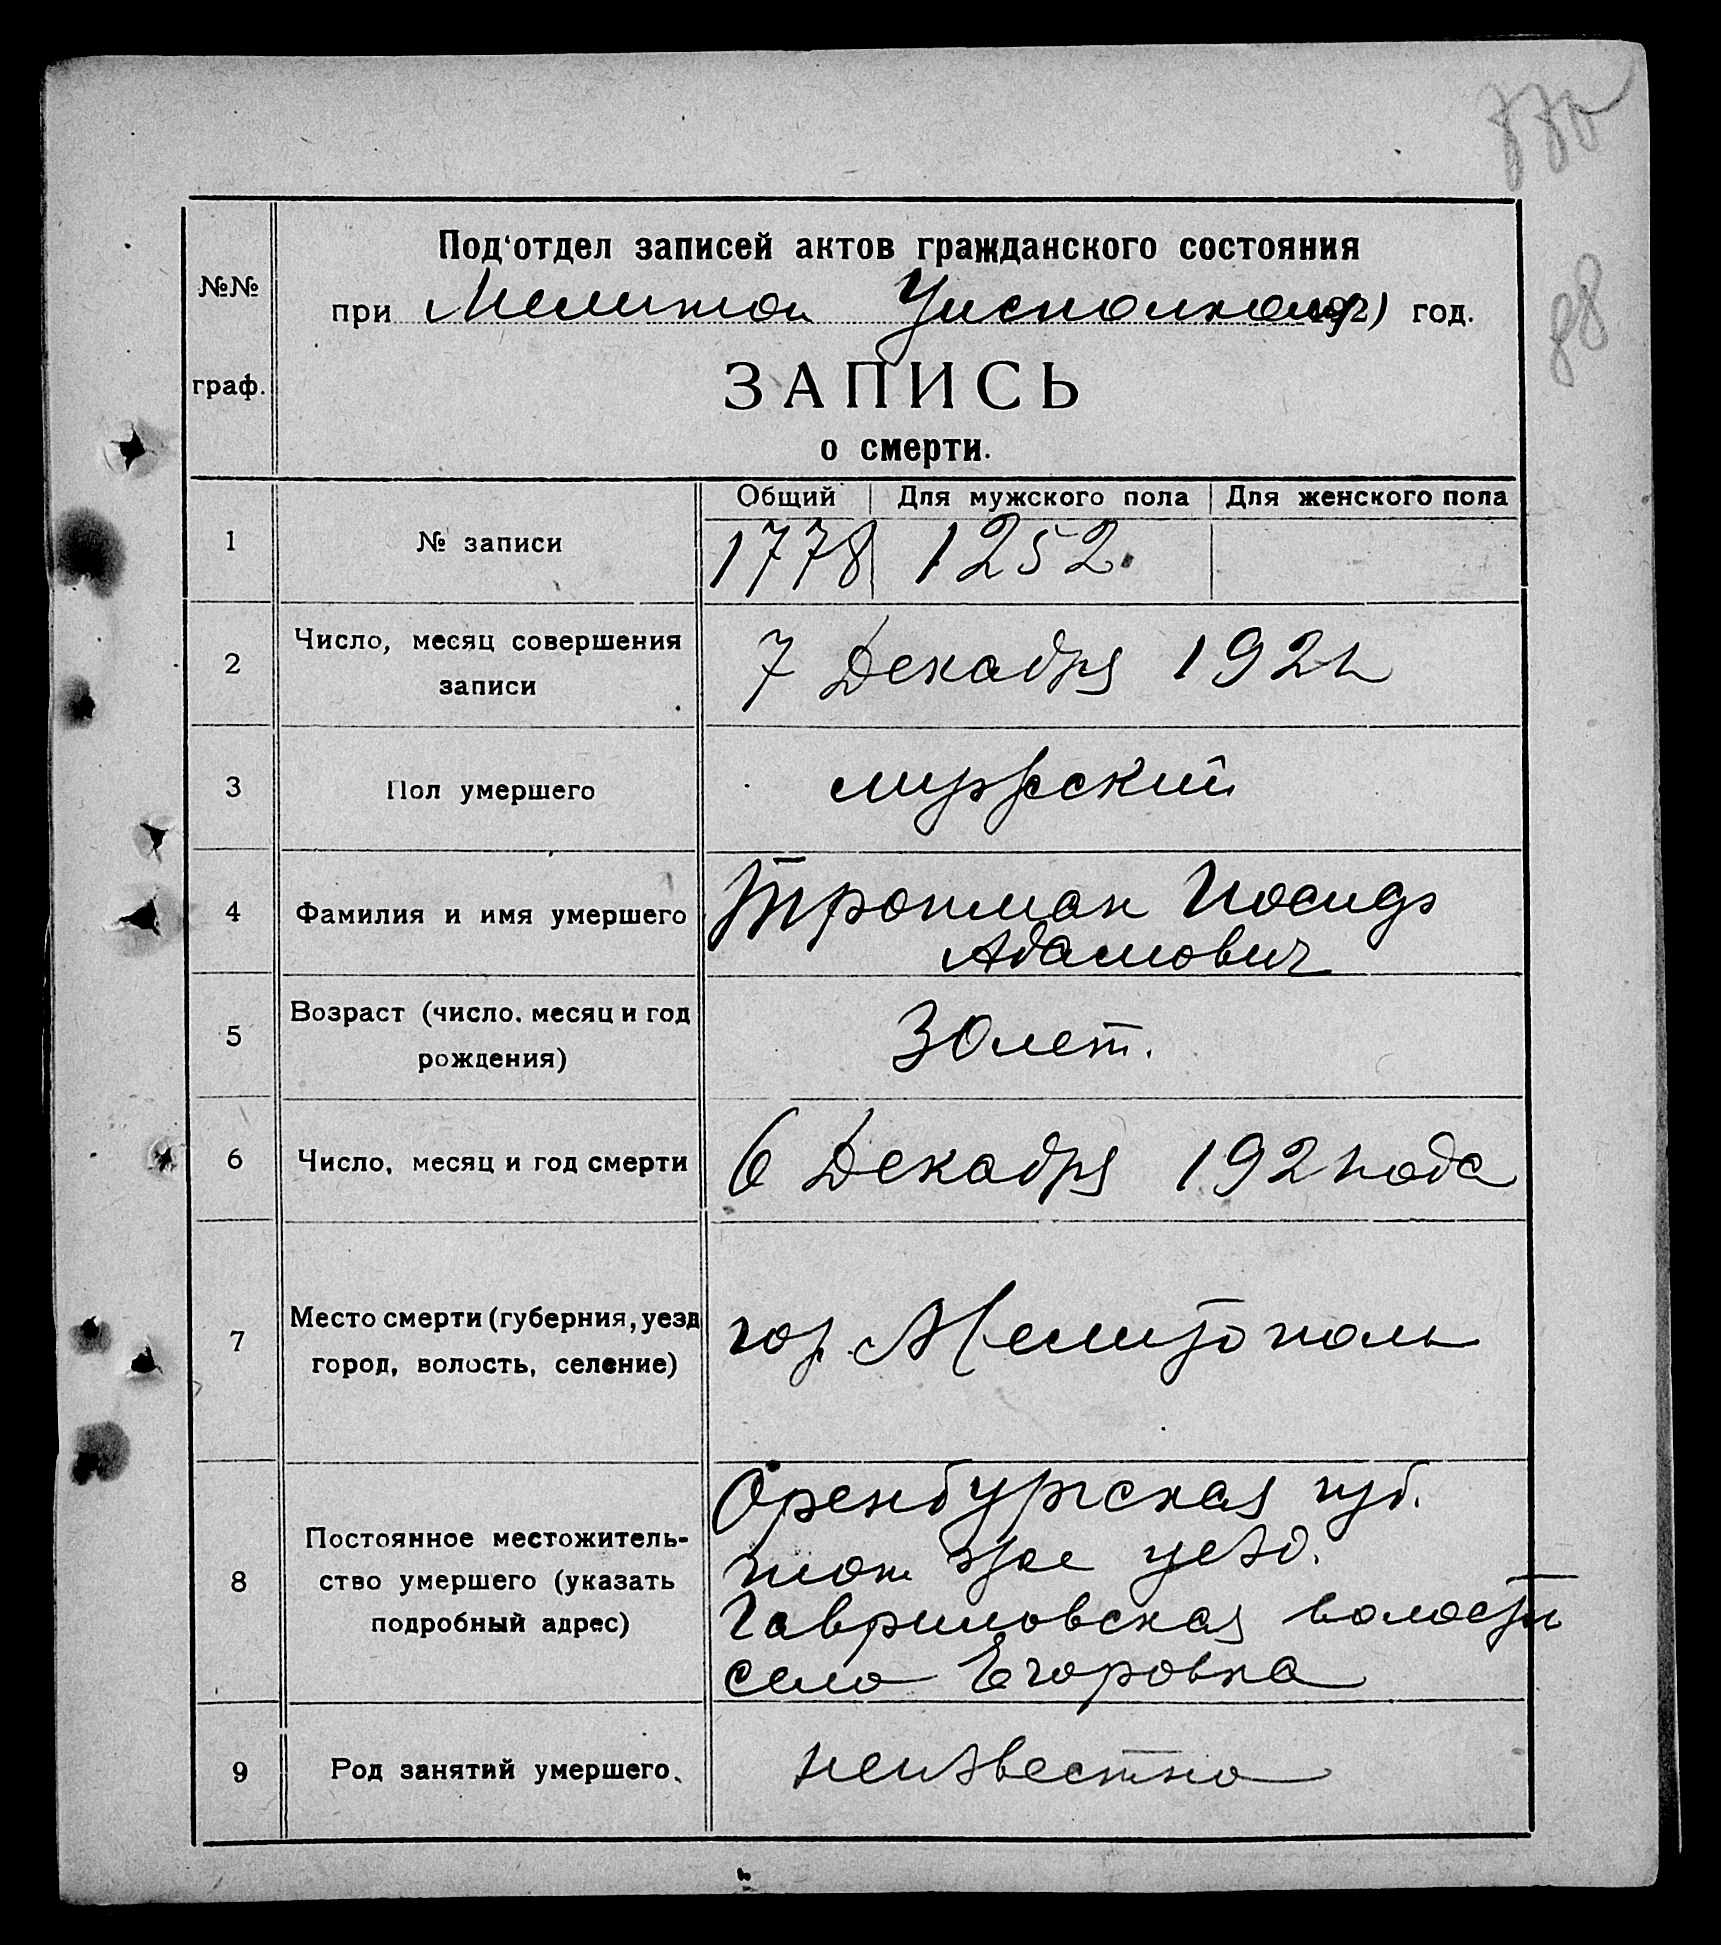 88
№№
граф.
Под'отдел записей актов гражданского состояния
при Мелитоп Уисполкому 1921 год.
ЗАПИСЬ
о смерти.
Общий Для мужского пола Для женского пола
1 № записи 1778 1252.
2 Число, месяц совершения
записи
7 Декабря 192 г
3 Пол умершего мужский
4 Фамилия и имя умершего Тропман Иосиф
Адамович
5 Возраст (число, месяц и год
рождения)
30 лет.
6 Число, месяц и год смерти 6 Декабря 192 года
7 Место смерти (губерния, уезд
город, волость, селение)
гор. Мелитополь
8 Постоянное местожитель-
ство умершего (указать
подробный адрес)
Оренбургская губ.
того же уезд.
Гавриловская волость
село Егоровка
9 Род занятий умершего. неизвестно